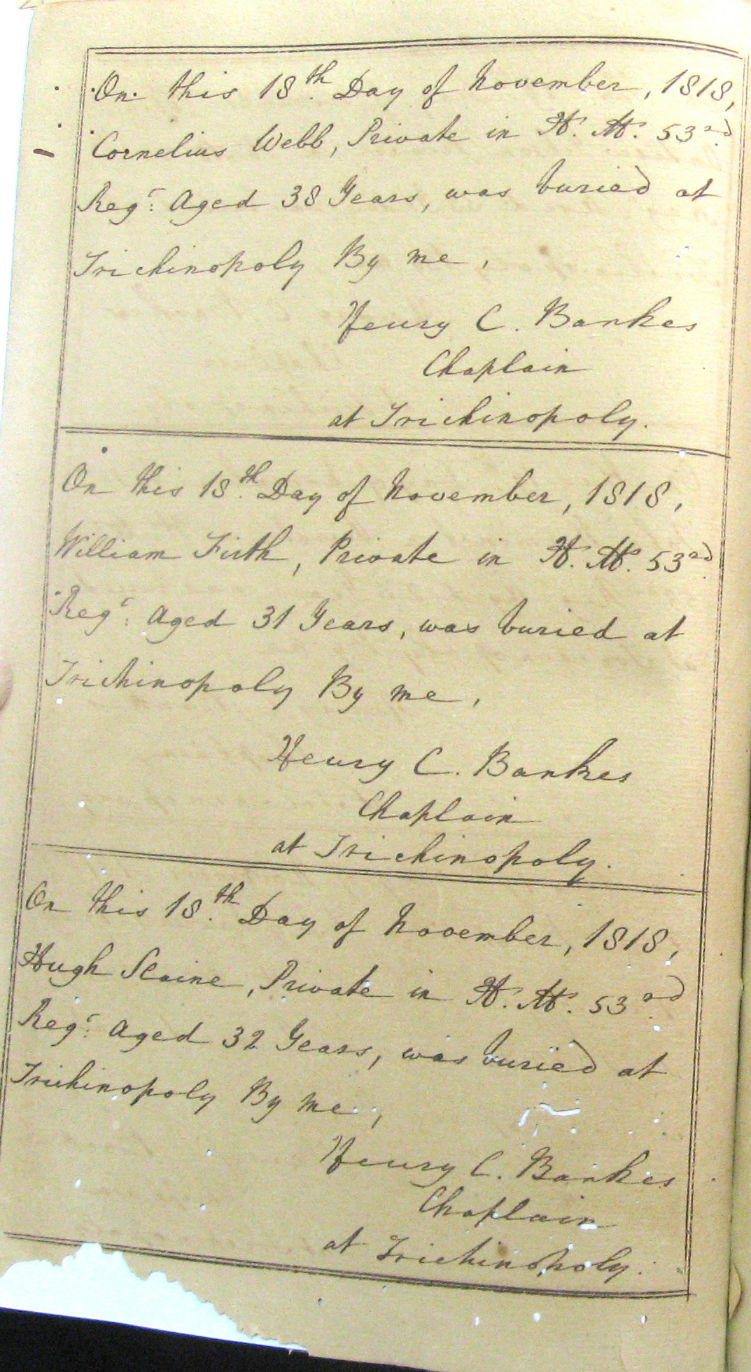 On this 18th Day of November, 1818,
Cornelius Webb, Private in H. M. 53rd
Regt. Aged 38 Years, was buried at
Trichinopoly By me,
Henry C. Bankes
Chaplain
at Trichinopoly.
On this 18th Day of November, 1818,
William Firth, Private in H. M. 53rd
Regt. Aged 31 Years, was buried at
Trichinopoly By me,
Henry C. Bankes
Chaplain
at Trichinopoly.
On this 18th Day of November, 1818,
Hugh Slaine, Private in H. M. 53rd
Regt. Aged 32 Years, was buried at
Trichinopoly By me,
Henry C. Bankes
Chaplain
at Trichinopoly.